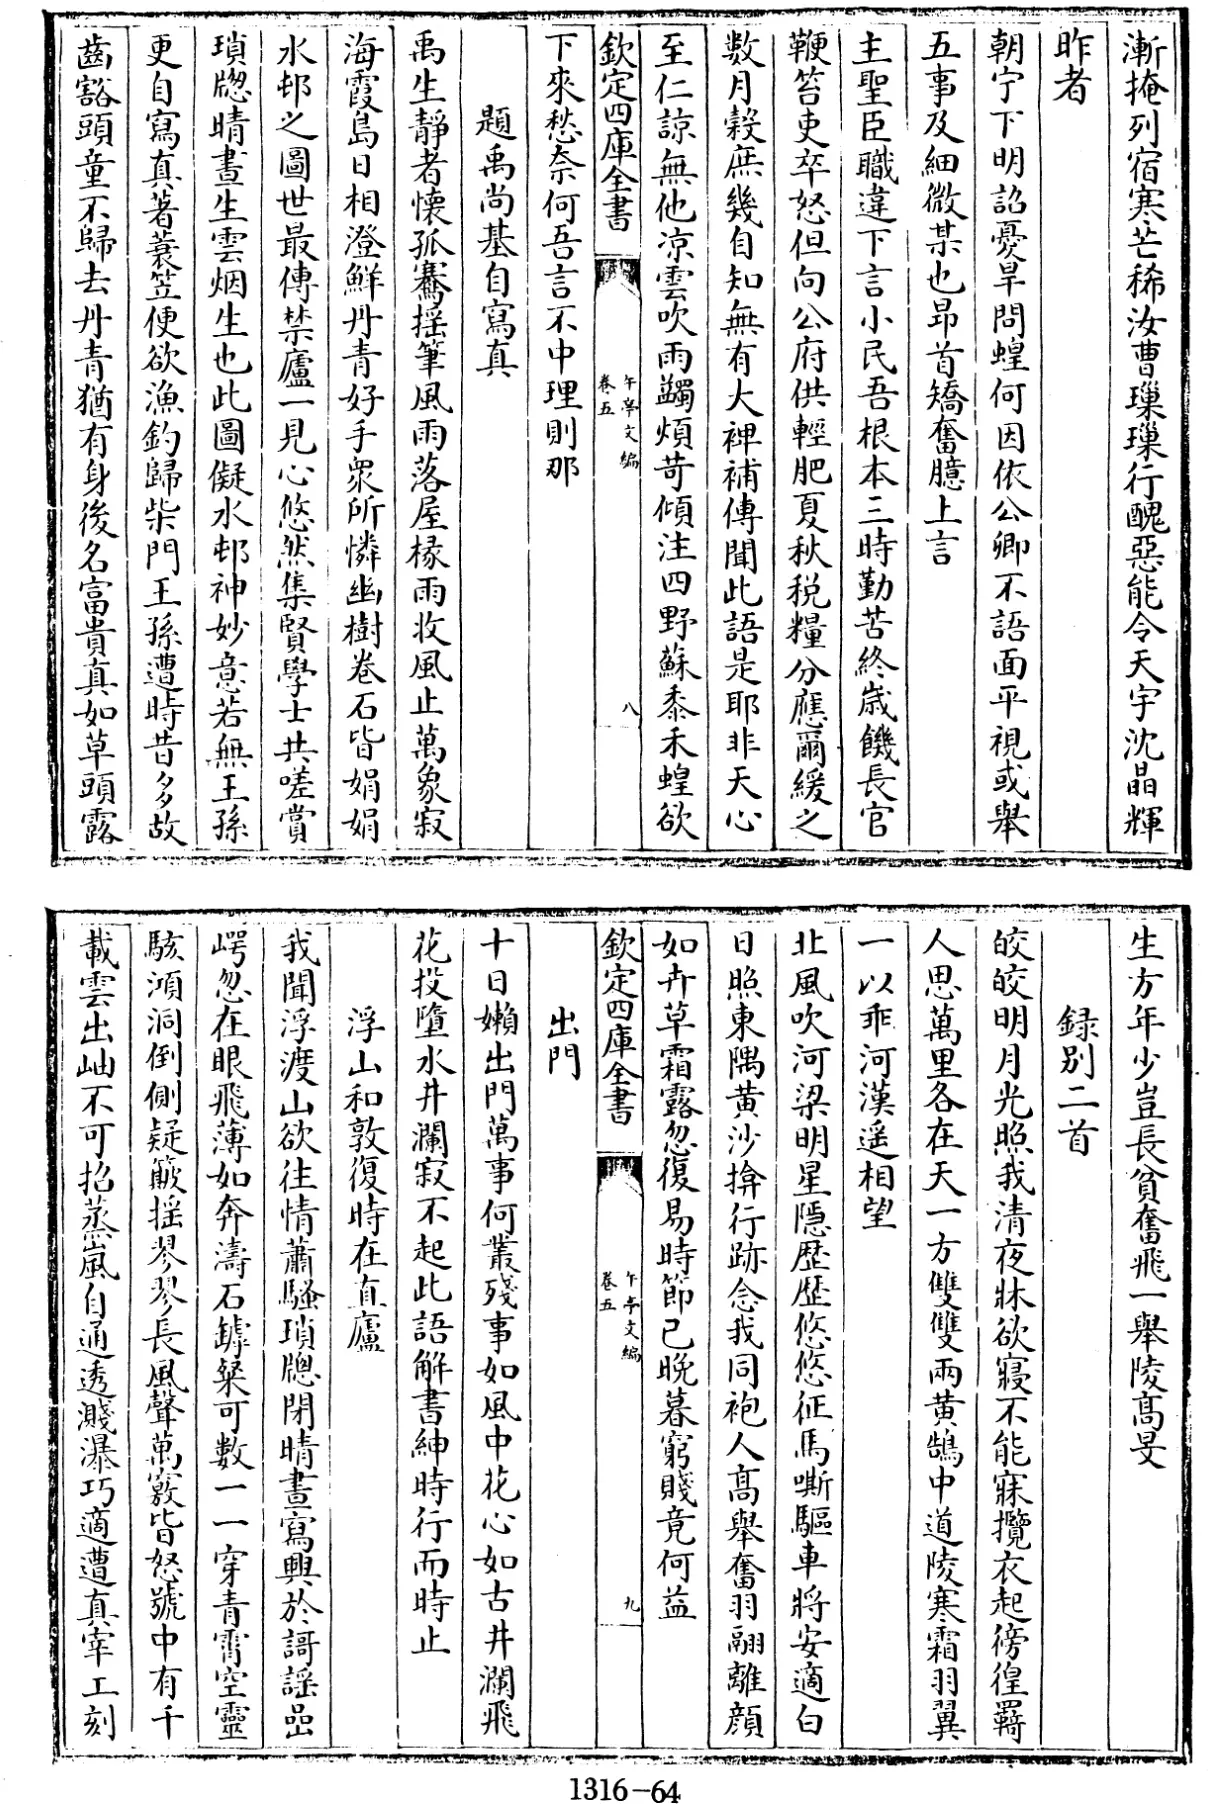 漸掩列宿寒芒稀汝曹璅璅行醜惡能令天宇沈晶輝
昨者
朝宁下明詔憂旱問蝗何因依公卿不語面平視或舉
五事及細微某也昂首矯奮臆上言
主聖臣職違下言小民吾根本三時勤苦終歲饑長官
鞭笞吏卒怒但向公府供輕肥夏秋税糧分應爾緩之
數月穀庶幾自知無有大裨補傳聞此語是耶非天心
至仁諒無他凉雲吹雨蠲煩苛傾注四野蘇黍禾蝗欲
欽定四庫全書
午亭文編
卷五
八
下來愁奈何吾言不中理則那
題禹尚基自寫真
禹生靜者懷孤騫揺筆風雨落屋椽雨收風止萬象寂
海霞島日相澄鮮丹青好手衆所憐幽樹卷石皆娟娟
水邨之圖世最傳禁廬一見心悠然集賢學士共嗟賞
瑣牕晴晝生雲烟生也此圖儗水邨神妙意若無王孫
更自寫真著蓑笠便欲漁釣歸柴門王孫遭時昔多故
齒豁頭童不歸去丹青猶有身後名富貴真如草頭露
生方年少豈長貧奮飛一舉陵髙旻
録别二首
皎皎明月光照我清夜牀欲寢不能寐攬衣起徬徨羇
人思萬里各在天一方雙雙兩黄鵠中道陵寒霜羽翼
一以乖河漢遥相望
北風吹河梁明星隠歴歴悠悠征馬嘶驅車將安適白
日照東隅黄沙揜行跡念我同袍人髙舉奮羽翮離顔
如卉草霜露忽復易時節已晚暮窮賤竟何益
欽定四庫全書
午亭文編
卷五
九
出門
十日嬾出門萬事何叢殘事如風中花心如古井瀾飛
花投墮水井瀾寂不起此語解書紳時行而時止
浮山和敦復時在直廬
我聞浮渡山欲往情蕭騷瑣牕閉晴晝寫興於謌謡嵒
崿忽在眼飛薄如奔濤石罅粲可數一一穿青霄空靈
駭澒洞倒側疑簸揺翏翏長風聲萬竅皆怒號中有千
載雲出岫不可招蒸嵐自通透濺瀑巧適遭真宰工刻
1316-64